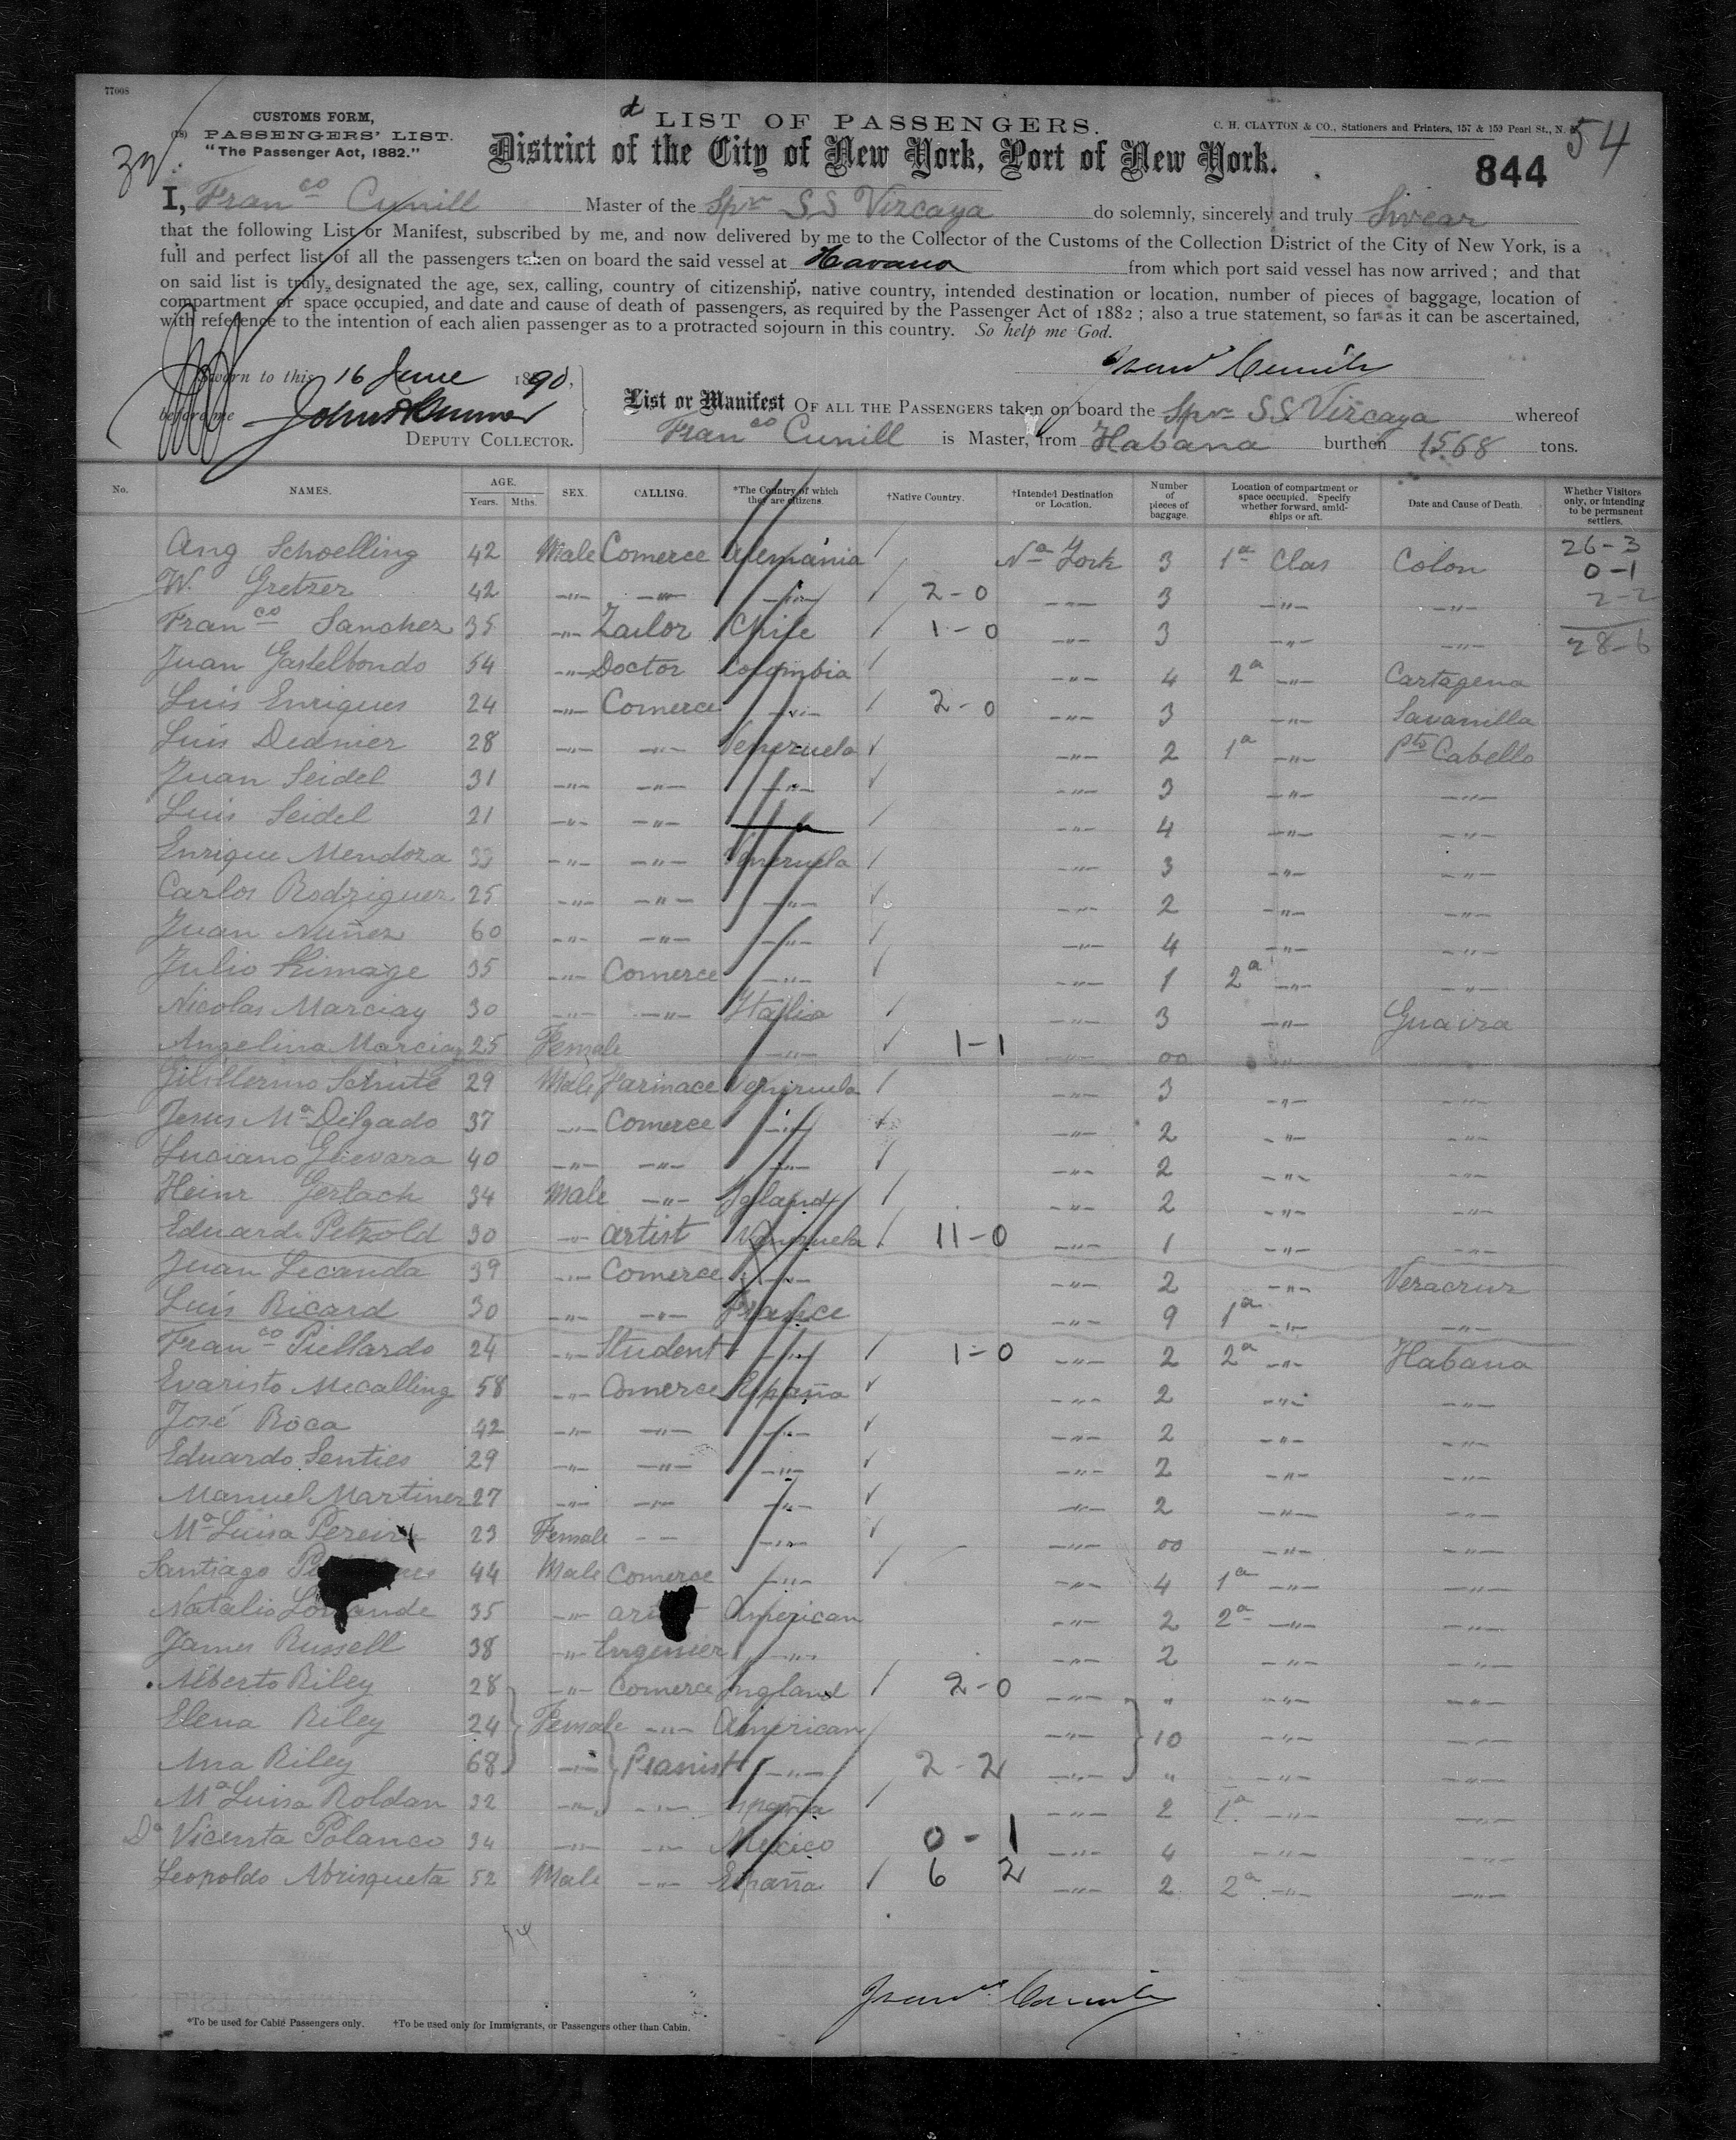 77008
CUSTOMS FORM,
(18) PASSENGERS' LIST.
"The Passenger Act, 1882."
LIST OF PASSENGERS.
C. H. CLAYTON & CO., Stationers and Printers, 157 & 159 Pearl St., N.
54
District of the City of New York, Port of New York.
844
I, Fran co Cunill Master of the Spn SS Vizcaya do solemnly, sincerely and truly Swear
that the following List or Manifest, subscribed by me, and now delivered by me to the Collector of the Customs of the Collection District of the City of New York, is a
full and perfect list of all the passengers taken on board the said vessel at Havana from which port said vessel has now arrived; and that
on said list is truly designated the age, sex, calling, country of citizenship, native country, intended destination or location, number of pieces of baggage, location of
compartment or space occupied, and date and cause of death of passengers, as required by the Passenger Act of 1882; also a true statement, so far as it can be ascertained,
with reference to the intention of each alien passenger as to a protracted sojourn in this country. So help me God.
Sworn to this 16 June 1890,
before me
DEPUTY COLLECTOR.
List or Manifest OF ALL THE PASSENGERS taken on board the Spn SS Vizcaya whereof
Fran co Cunill is Master, from Habana burthen 1568 tons.
No. NAMES. AGE. Years. Mths. SEX. CALLING. *The Country of which they are citizens. †Native Country. †Intended Destination or Location. Number of pieces of baggage. Location of compartment or space occupied. Specify whether forward, amidships or aft. Date and Cause of Death. Whether Visitors only, or intending to be permanent settlers.
Aug Schoelling 42 Male Comerce Alemania Na York 3 1a Clas Colon 26-3
0-1
W. Gretzer 42 -"- -"- -"- 2-0 -"- 3 -"- -"- 2-2
Franco Sanchez 35 -"- Tailor Chile 1-0 -"- 3 -"- -"- 28-6
Juan Gastelbondo 54 -"- Doctor Colombia -"- 4 2a -"- Cartagena
Luis Enriques 24 -"- Comerce -"- 2-0 -"- 3 -"- Savanilla
Luis Dednier 28 -"- -"- Venezuela -"- 2 1a -"- Pto Cabello
Juan Seidel 31 -"- -"- -"- -"- 3 -"- -"-
Luis Seidel 21 -"- -"- -"- -"- 4 -"- -"-
Enrique Mendoza 33 -"- -"- Venezuela -"- 3 -"- -"-
Carlos Rodriguez 25 -"- -"- -"- -"- 2 -"- -"-
Juan Nuñez 60 -"- -"- -"- -"- 4 -"- -"-
Julio 35 -"- Comerce -"- -"- 1 2a -"- -"-
Nicolas Marciay 30 -"- -"- Italia -"- 3 -"- Guaira
Angelina Marciay 25 Female -"- 1-1 -"- 00 -"-
Guillermo 29 Male Farmace Venezuela -"- 3 -"- -"-
Jesus Ma Delgado 37 -"- Comerce -"- -"- 2 -"- -"-
Luciano Guevara 40 -"- -"- -"- -"- 2 -"- -"-
Heinr Gerlach 34 Male -"- -"- 2 -"- -"-
Eduardo Petzold 30 -"- artist Venezuela 11-0 -"- 1 -"- -"-
Juan Lecanda 39 -"- Comerce -"- -"- 2 -"- Veracruz
Luis Ricard 30 -"- -"- France -"- 9 1a -"- -"-
Franco Piellardo 24 -"- Student -"- 1-0 -"- 2 2a -"- Habana
Evaristo Mecalling 58 -"- Comerce España -"- 2 -"- -"-
José Roca 42 -"- -"- -"- -"- 2 -"- -"-
Eduardo Senties 29 -"- -"- -"- -"- 2 -"- -"-
Manuel Martinez 27 -"- -"- -"- -"- 2 -"- -"-
Ma Luisa Pereira 23 Female - - -"- -"- 00 -"- -"-
Santiago 44 Male Comerce -"- -"- 4 1a -"- -"-
Natalio 35 -"- American 2 2a -"- -"-
James Russell 38 -"- Engenier -"- -"- 2 -"- -"-
Alberto Riley 28 -"- Comerce England 2-0 -"- " -"- -"-
Elena Riley 24 Female -"- American -"- 10 -"- -"-
Ana Riley 68 -"- Pianist -"- 2-2 -"- " -"- -"-
Ma Luisa Roldan 32 -"- -"- España -"- 2 1a -"- -"-
Da Vicenta Polanco 34 -"- -"- Mexico 0-1 -"- 4 -"- -"-
Leopoldo Abrisqueta 52 Male -"- España 6 2 -"- 2 2a -"- -"-
*To be used for Cabin Passengers only. †To be used only for Immigrants, or Passengers other than Cabin.